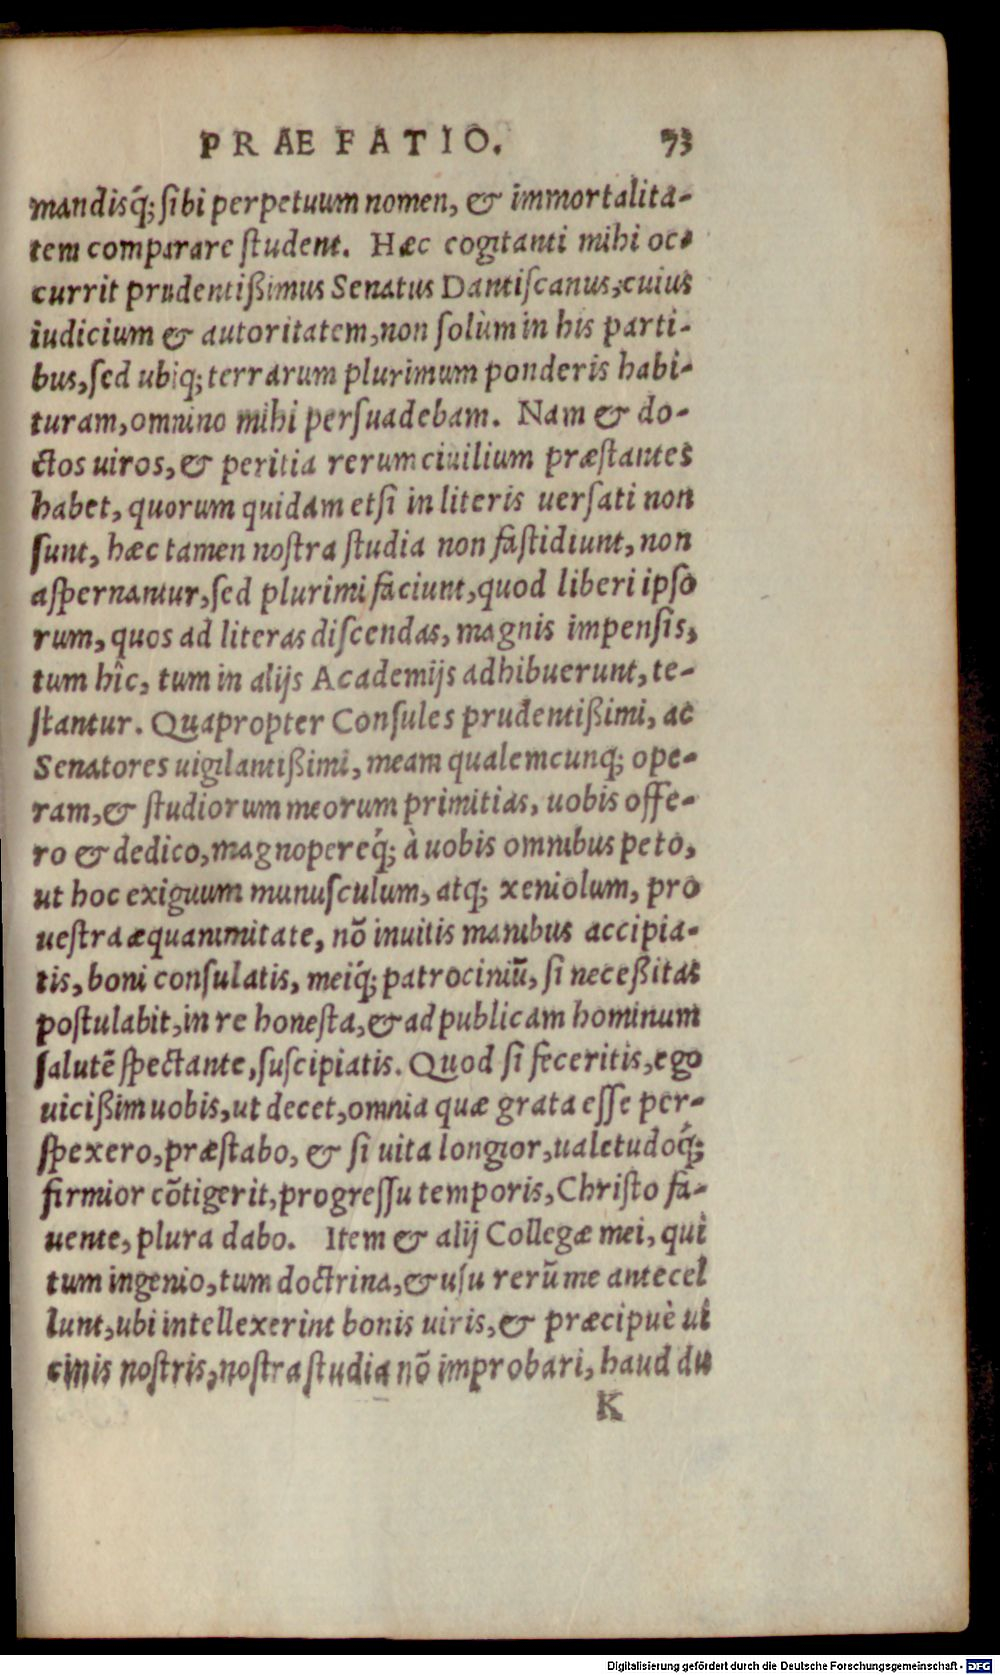 PRAEFATIO. 73
mandisq́; ſibi perpetuum nomen, & immortalita-
tem comparare ſtudent. Hæc cogitanti mihi oc-
currit prudentißimus Senatus Dantiſcanus, cuius
iudicium & autoritatem, non ſolùm in his parti-
bus, ſed ubiq; terrarum plurimum ponderis habi-
turam, omnino mihi perſuadebam. Nam & do-
ctos uiros, & peritia rerum ciuilium præſtantes
habet, quorum quidam etſi in literis uerſati non
ſunt, hæc tamen noſtra ſtudia non faſtidiunt, non
aſpernantur, ſed plurimi faciunt, quod liberi ipſo
rum, quos ad literas diſcendas, magnis impenſis,
tum hîc, tum in alijs Academijs adhibuerunt, te-
ſtantur. Quapropter Conſules prudentißimi, ac
Senatores uigilantißimi, meam qualemcunq; ope-
ram, & ſtudiorum meorum primitias, uobis offe-
ro & dedico, magnopereq́; à uobis omnibus peto,
ut hoc exiguum munuſculum, atq; xeniolum, pro
ueſtra æquanimitate, nō inuitis manibus accipia-
tis, boni conſulatis, meiq́; patrociniū, ſi neceßitas
poſtulabit, in re honeſta, & ad publicam hominum
ſalutē ſpectante, ſuſcipiatis. Quod ſi feceritis, ego
uicißim uobis, ut decet, omnia quæ grata eſſe per-
ſpexero, præſtabo, & ſi uita longior, ualetudoq́;
firmior cōtigerit, progreſſu temporis, Chriſto fa-
uente, plura dabo. Item & alij Collegæ mei, qui
tum ingenio, tum doctrina, & uſu rerū me antecel
lunt, ubi intellexerint bonis uiris, & præcipuè ui
cinis noſtris, noſtra ſtudia nō improbari, haud du
K
Digitalisierung gefördert durch die Deutsche Forschungsgemeinschaft - DFG